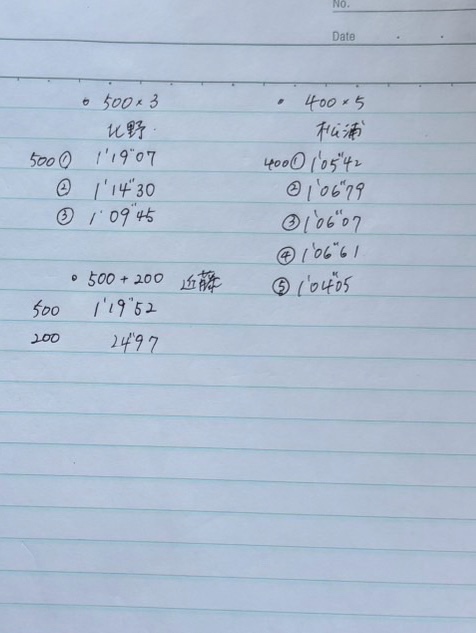 No.
Date
• 500×3
北野
500① 1'19"07
② 1'14"30
③ 1'09"45
• 500+200 近藤
500 1'19"52
200 24"97
• 400×5
松浦
400① 1'05"42
② 1'06"79
③ 1'06"07
④ 1'06"61
⑤ 1'04"05